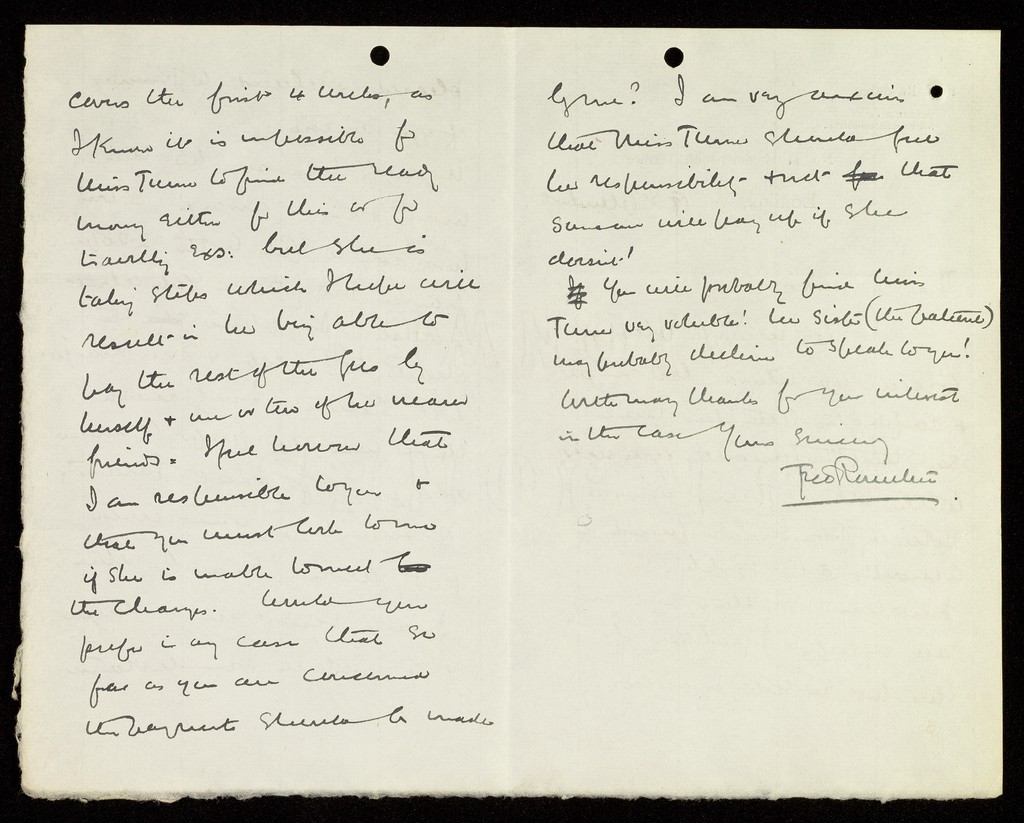 covers the first 4 weeks, as
I know it is impossible for
Miss Turner to find the ready
money either for this or for
travelling exs: but she is
taking steps which I hope will
result in her being able to
pay the rest of the fees by
herself + one or two of her nearer
friends. I feel however that
I am responsible to you +
that you must look to me
if she is unable to meet
the charges. Would you
prefer in any case that so
far as you are concerned
the payments should be made
by me? I am very anxious
that Miss Turner should feel
her responsibility + not that
someone will pay up if she
doesn't!
You will probably find Miss
Turner very voluble! her sister (the patient)
may probably decline to speak to you!
With many thanks for your interest
in the case Yours sincerely
Fred